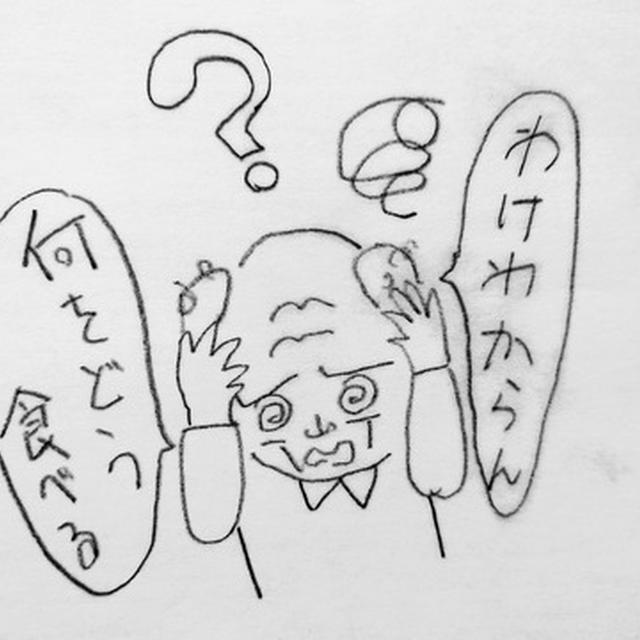 わけわからん
何をどう
食べる
?